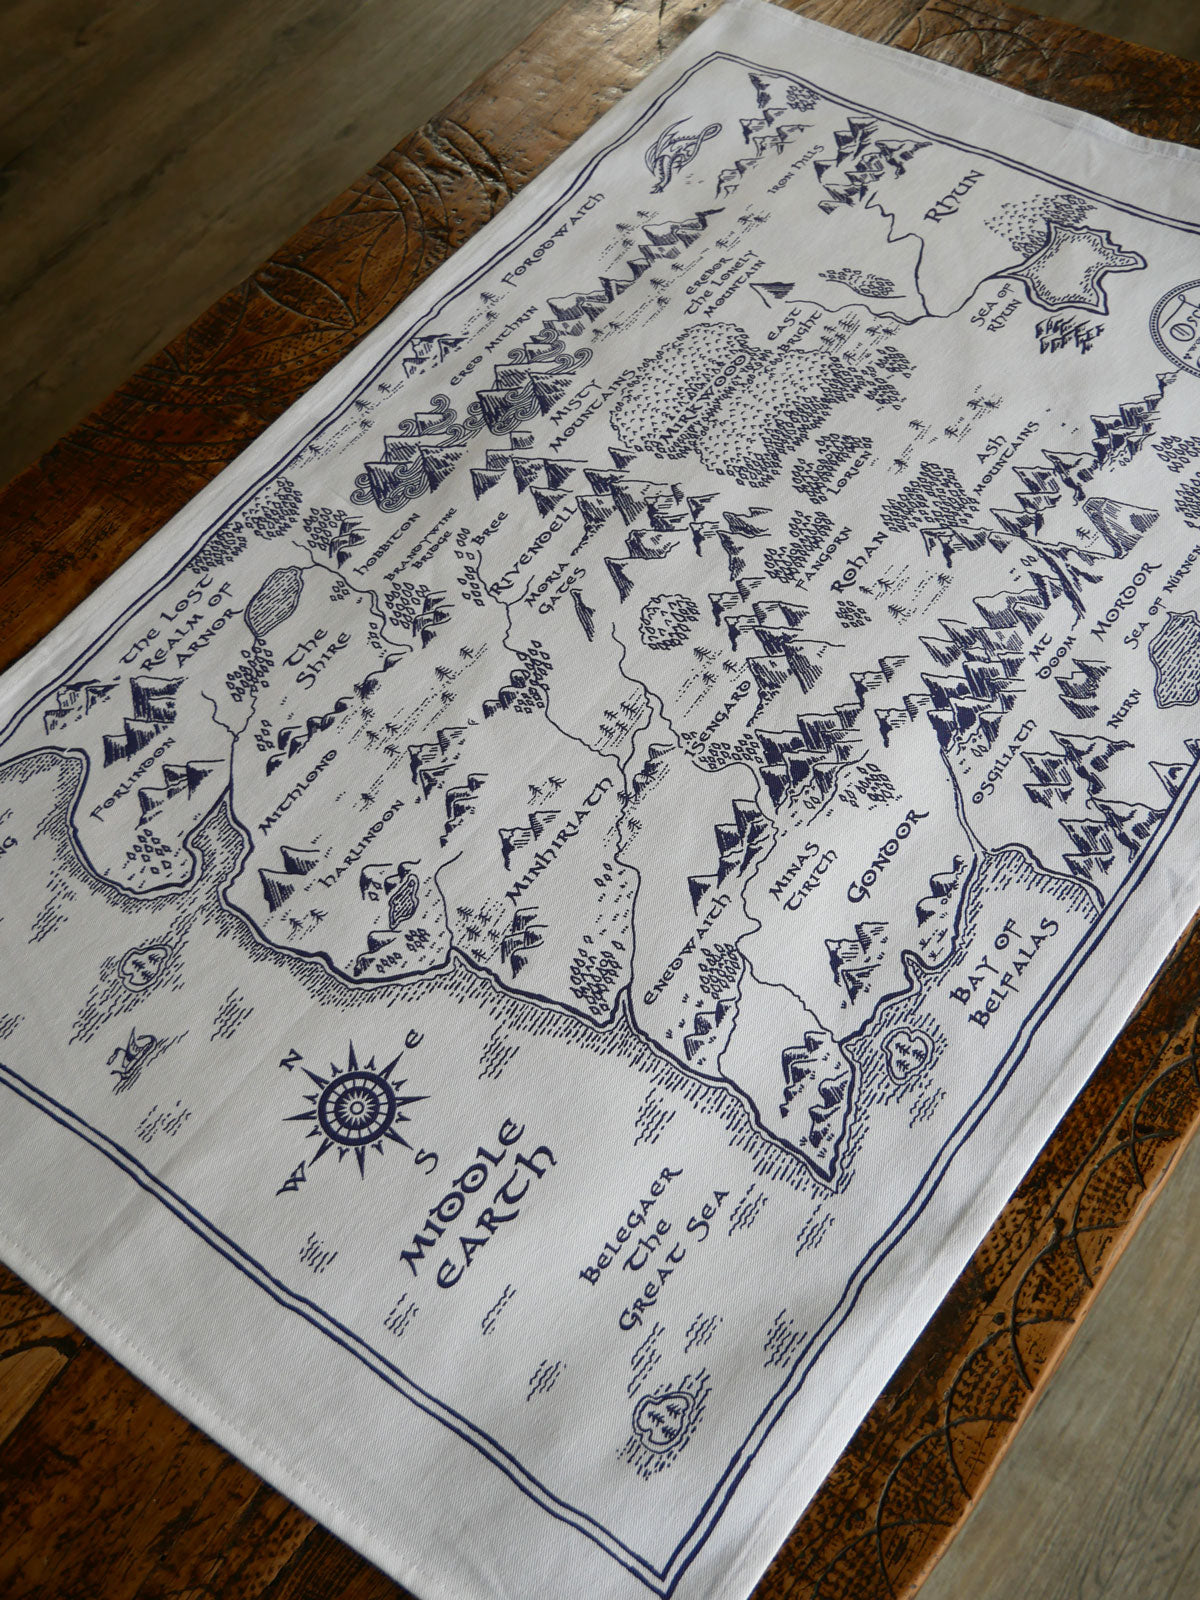 Forodwaith
Iron Hills
Rhun
Sea of
Rhun
Erebor
The Lonely
Mountain
East
Bright
Ered Mithrin
Misty
Mountains
Mirkwood
Lorien
Ash
Mountains
Hobbiton
Brandywine
Bridge
Bree
Rivendell
Moria
Gates
Fangorn
Rohan
Mordor
Sea of Nurnen
Mt
Doom
Nurn
The Lost
Realm of
Arnor
The
Shire
Isengard
Osgiliath
Forlindon
Mithlond
Harlindon
Minhiriath
Enedwaith
Minas
Tirith
Gondor
Bay of
Belfalas
N
E
S
W
Middle
Earth
Belegaer
The
Great Sea